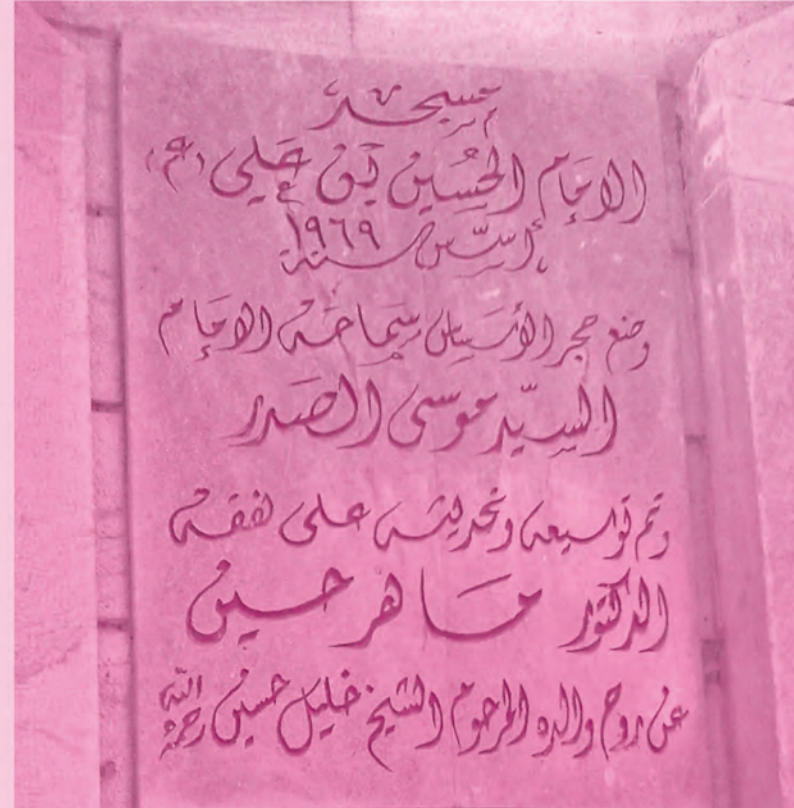 مسجد
الإمام الحسين بن علي (ع)
أسس سنة ١٩٦٩
وضع حجر الأساس سماحة الإمام
السيّد موسى الصدر
وتم توسيعه وتحديثه على نفقة
الدكتور ماهر حسين
عن روح والده المرحوم الشيخ خليل حسين رحمه الله